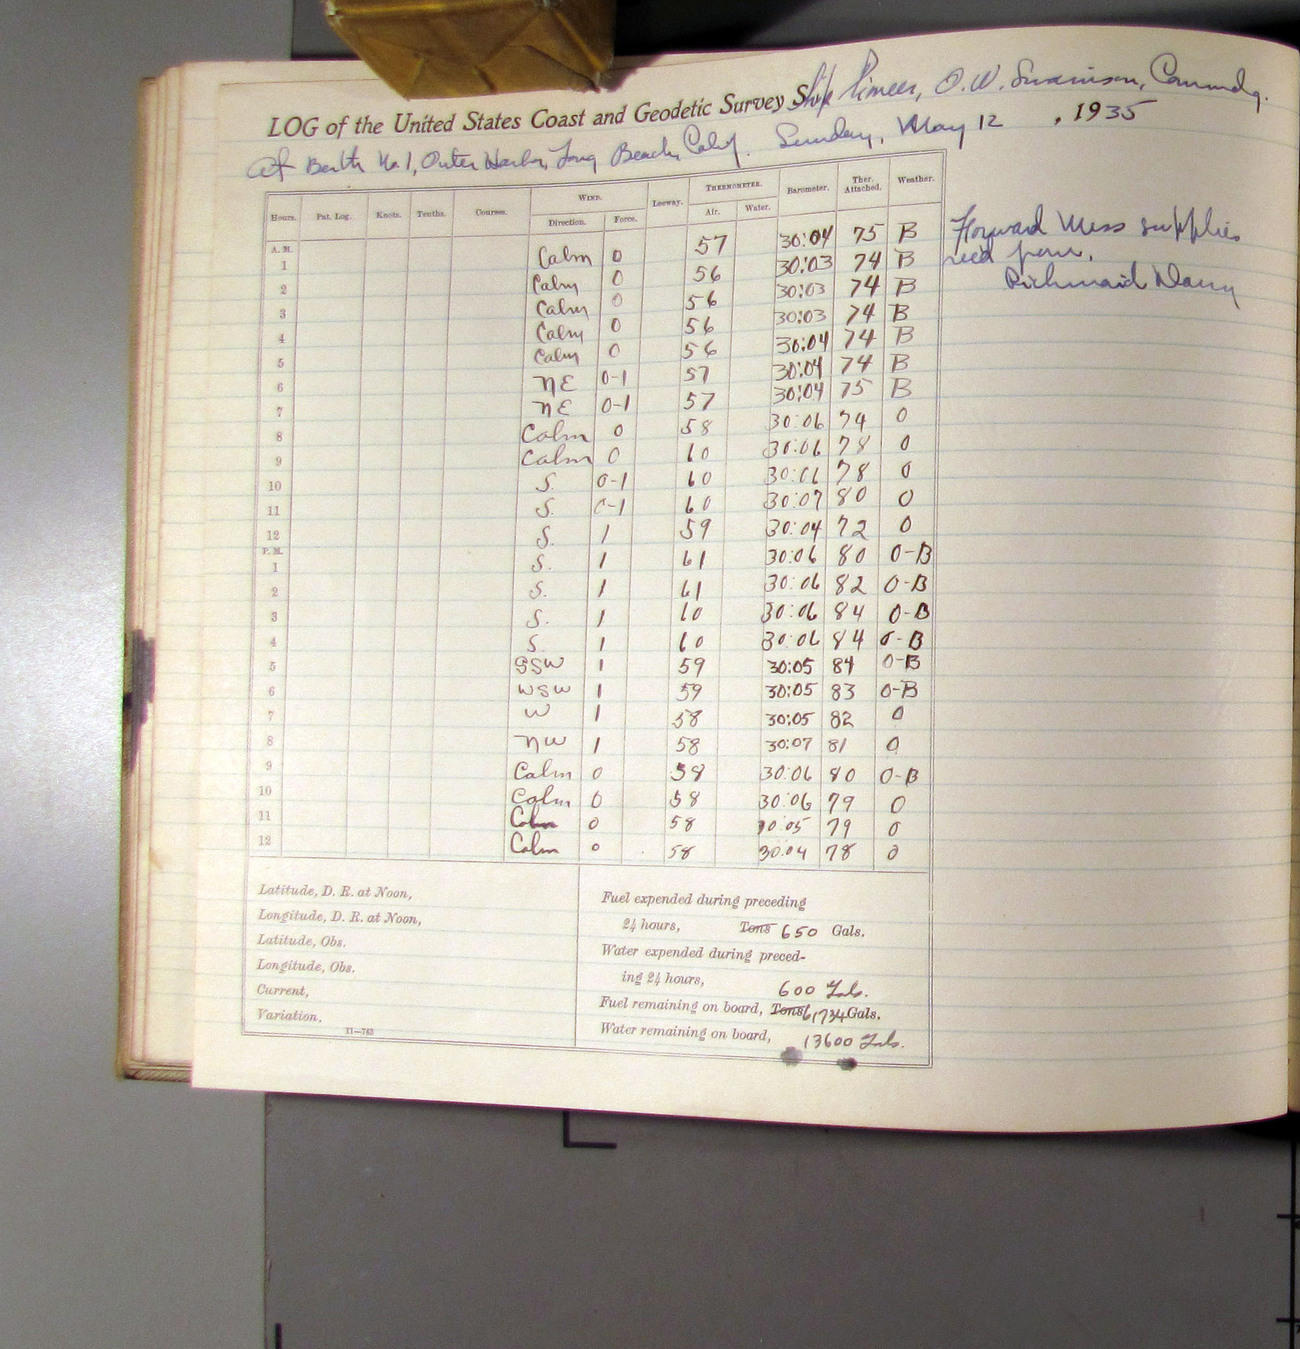 LOG of the United States Coast and Geodetic Survey Ship Pioneer, O.W. Swainson, Commdg.
At Berth No. 1, Outer Harbor, Long Beach, Calif. Sunday, May 12, 1935
Hours. Pat. Log. Knots. Tenths. Courses. WIND. Leeway. THERMOMETER. Barometer. Ther. Attached. Weather.
Direction. Force. Air. Water.
A. M.
1 Calm 0 57 30:04 75 B
2 Calm 0 56 30:03 74 B
3 Calm 0 56 30:03 74 B
4 Calm 0 56 30:03 74 B
5 Calm 0 56 30:04 74 B
6 NE 0-1 57 30:04 74 B
7 NE 0-1 57 30:04 75 B
8 Calm 0 58 30:06 74 0
9 Calm 0 60 30:06 78 0
10 S. 0-1 60 30:06 78 0
11 S. 0-1 60 30:07 80 0
12 S. 1 59 30:04 72 0
P. M.
1 S. 1 61 30:06 80 0-B
2 S. 1 61 30:06 82 0-B
3 S. 1 60 30:06 84 0-B
4 S. 1 60 30:06 84 0-B
5 SSW 1 59 30:05 84 0-B
6 WSW 1 59 30:05 83 0-B
7 W 1 58 30:05 82 0
8 NW 1 58 30:07 81 0
9 Calm 0 58 30:06 80 0-B
10 Calm 0 58 30:06 79 0
11 Calm 0 58 30:05 79 0
12 Calm 0 58 30:04 78 0
Forward Mess supplies
rec'd from,
Dairy
Latitude, D. R. at Noon,
Longitude, D. R. at Noon,
Latitude, Obs.
Longitude, Obs.
Current,
Variation.
11—763
Fuel expended during preceding
24 hours, Tons 650 Gals.
Water expended during preced-
ing 24 hours, 600 Gals.
Fuel remaining on board, Tons 6,734 Gals.
Water remaining on board, 13600 Gals.